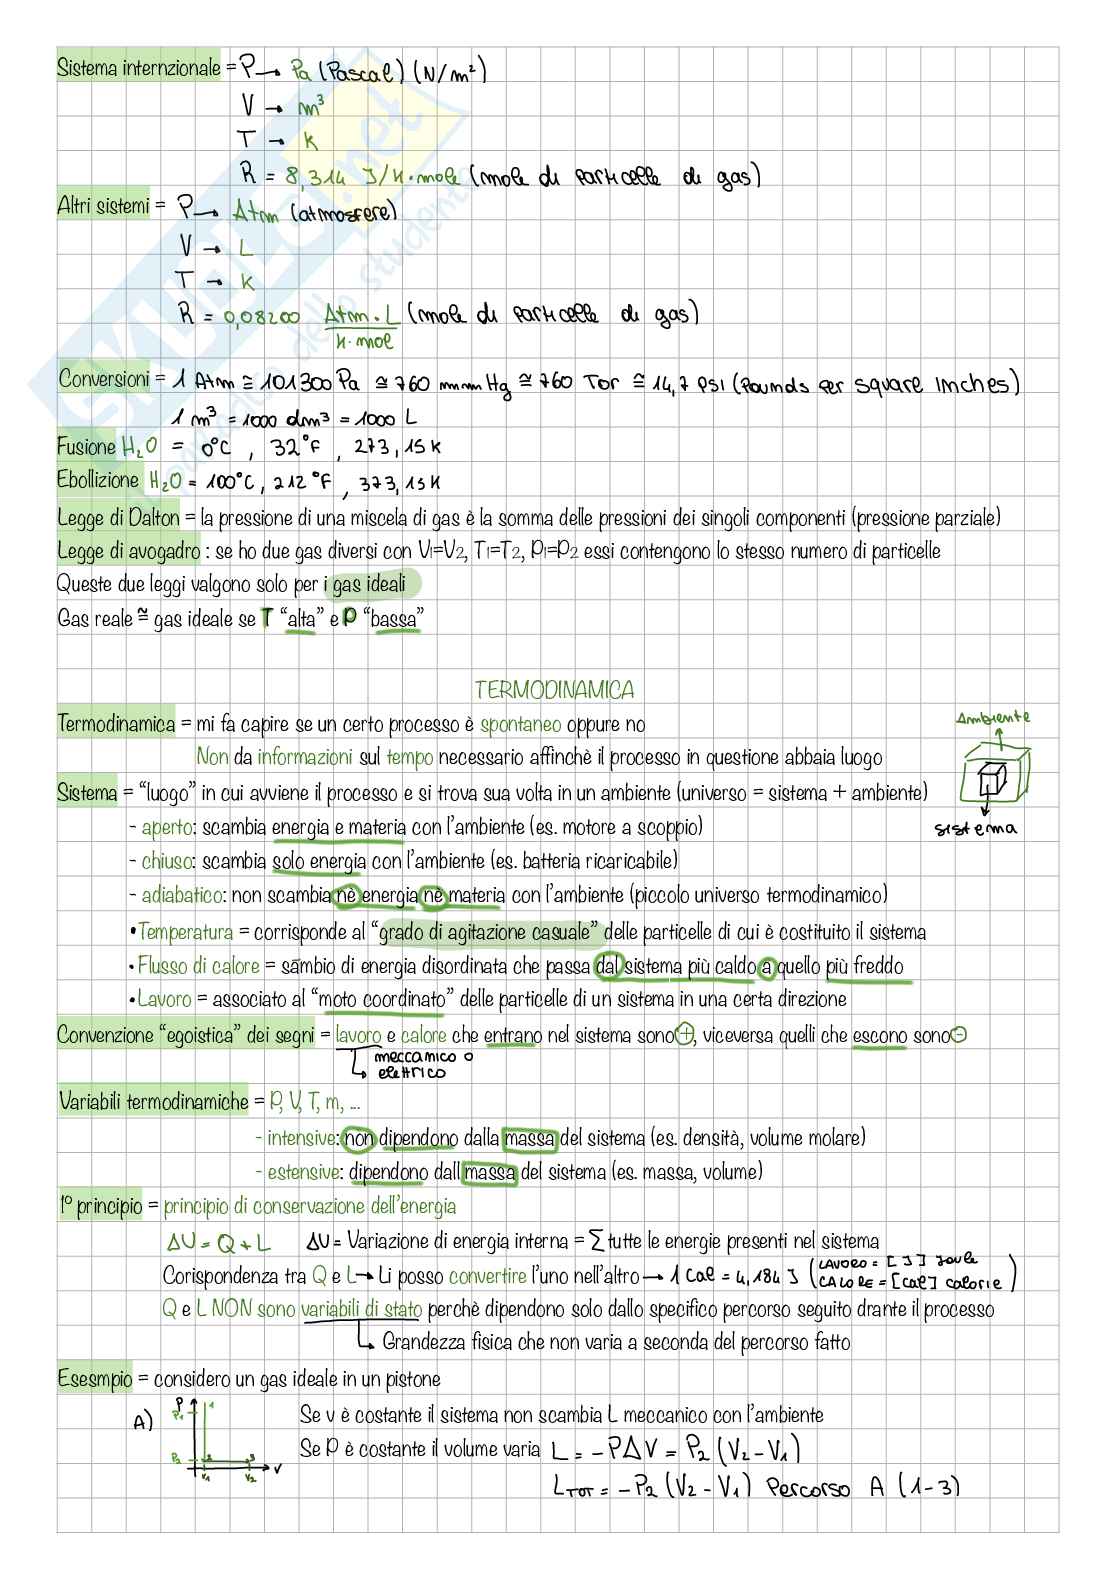 Sistema internzionale = P → Pa (Pascal) (N/m²)
V → m³
T → K
R = 8,314 J/K·mole (mole di particelle di gas)
Altri sistemi = P → Atm (atmosfere)
V → L
T → K
R = 0,08200 Atm·L/K·mol (mole di particelle di gas)
Conversioni = 1 Atm ≅ 101300 Pa ≅ 760 mmm Hg ≅ 760 Tor ≅ 14,7 psi (Pounds per square inches)
1 m³ = 1000 dm³ = 1000 L
Fusione H₂O = 0°C , 32°F , 273,15 K
Ebollizione H₂O = 100°C, 212°F , 373,15 K
Legge di Dalton = la pressione di una miscela di gas è la somma delle pressioni dei singoli componenti (pressione parziale)
Legge di avogadro : se ho due gas diversi con V₁=V₂, T₁=T₂, P₁=P₂ essi contengono lo stesso numero di particelle
Queste due leggi valgono solo per i gas ideali
Gas reale ≅ gas ideale se T “alta” e P “bassa”
TERMODINAMICA
Termodinamica = mi fa capire se un certo processo è spontaneo oppure no
Non da informazioni sul tempo necessario affinchè il processo in questione abbaia luogo
Ambiente
Sistema = “luogo” in cui avviene il processo e si trova sua volta in un ambiente (universo = sistema + ambiente)
sistema
- aperto: scambia energia e materia con l’ambiente (es. motore a scoppio)
- chiuso: scambia solo energia con l’ambiente (es. batteria ricaricabile)
- adiabatico: non scambia nè energia nè materia con l’ambiente (piccolo universo termodinamico)
• Temperatura = corrisponde al “grado di agitazione casuale” delle particelle di cui è costituito il sistema
• Flusso di calore = sambio di energia disordinata che passa dal sistema più caldo a quello più freddo
• Lavoro = associato al “moto coordinato” delle particelle di un sistema in una certa direzione
Convenzione “egoistica” dei segni = lavoro e calore che entrano nel sistema sono +, viceversa quelli che escono sono -
meccanico o
elettrico
Variabili termodinamiche = P, V, T, m, ...
- intensive: non dipendono dalla massa del sistema (es. densità, volume molare)
- estensive: dipendono dall massa del sistema (es. massa, volume)
1° principio = principio di conservazione dell’energia
ΔU = Q + L ΔU = Variazione di energia interna = Σ tutte le energie presenti nel sistema
Corispondenza tra Q e L → Li posso convertire l’uno nell’altro → 1 Cal = 4,184 J (LAVORO = [J] Joule
CALORE = [Cal] calorie)
Q e L NON sono variabili di stato perchè dipendono solo dallo specifico percorso seguito drante il processo
Grandezza fisica che non varia a seconda del percorso fatto
Esesmpio = considero un gas ideale in un pistone
A) P P₁ 1 P₂ 2 3 V₁ V₂ V
Se v è costante il sistema non scambia L meccanico con l’ambiente
Se P è costante il volume varia L = -PΔV = P₂ (V₂-V₁)
L TOT = -P₂ (V₂-V₁) Percorso A (1-3)
SKUOLA.net